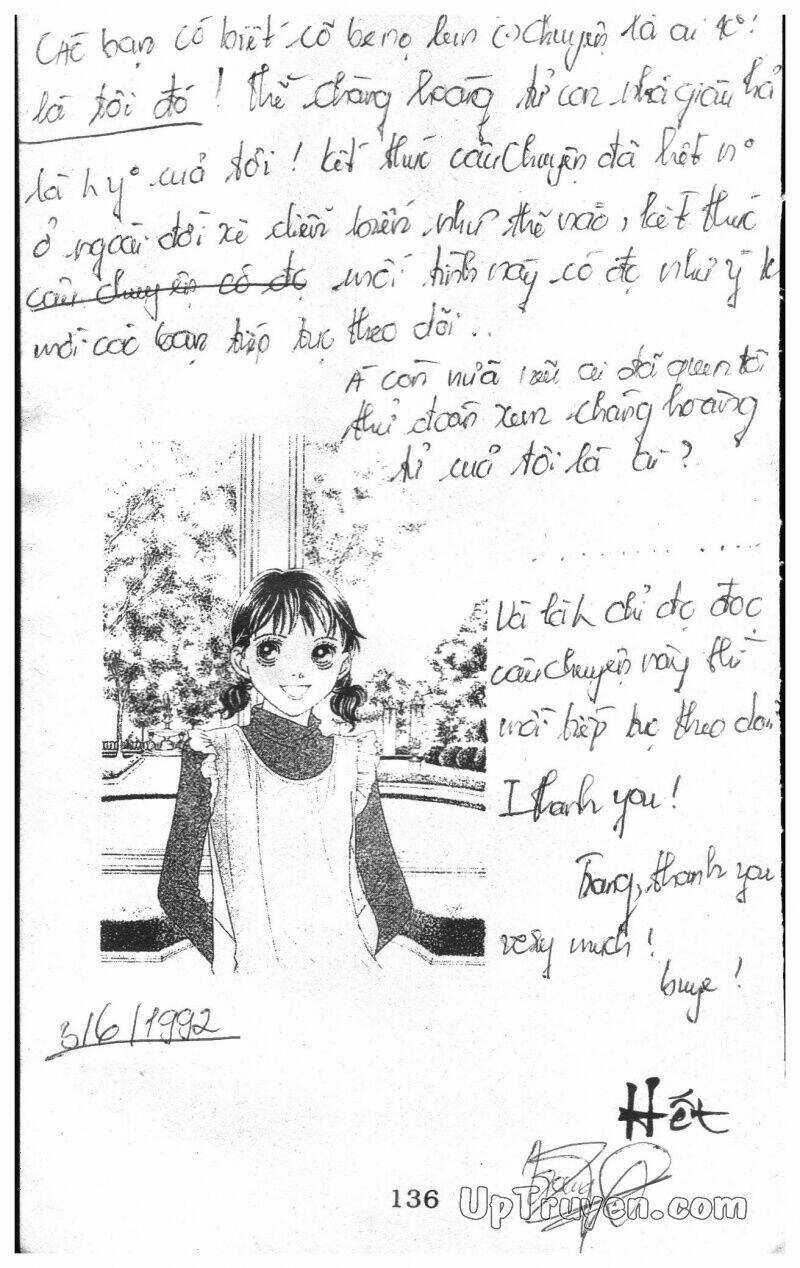 CÁC bạn có biết cô bé nọ  chuyện là ai k°!
là tôi đó! Thế chàng hoàng tử con nhà giàu hả
là hy° cuả tôi! kết thúc câu chuyện đã hết n°
ở ngoài đời xẽ diễn biến như thế nào, kết thúc
câu chuyện có đc mối tình này có đc như ý k
mời các bạn tiếp tục theo dõi..
À còn nữa ai đã quen tôi
thử đoán xem chàng hoàng
tử cuả tôi là ai?
Và chỉ đc đọc
câu chuyện này thì
mới tiếp tục theo dõi
I thank you!
Trang, thank you
very much!
buye!
3/6/1992
Hết
136
UpTruyen.com